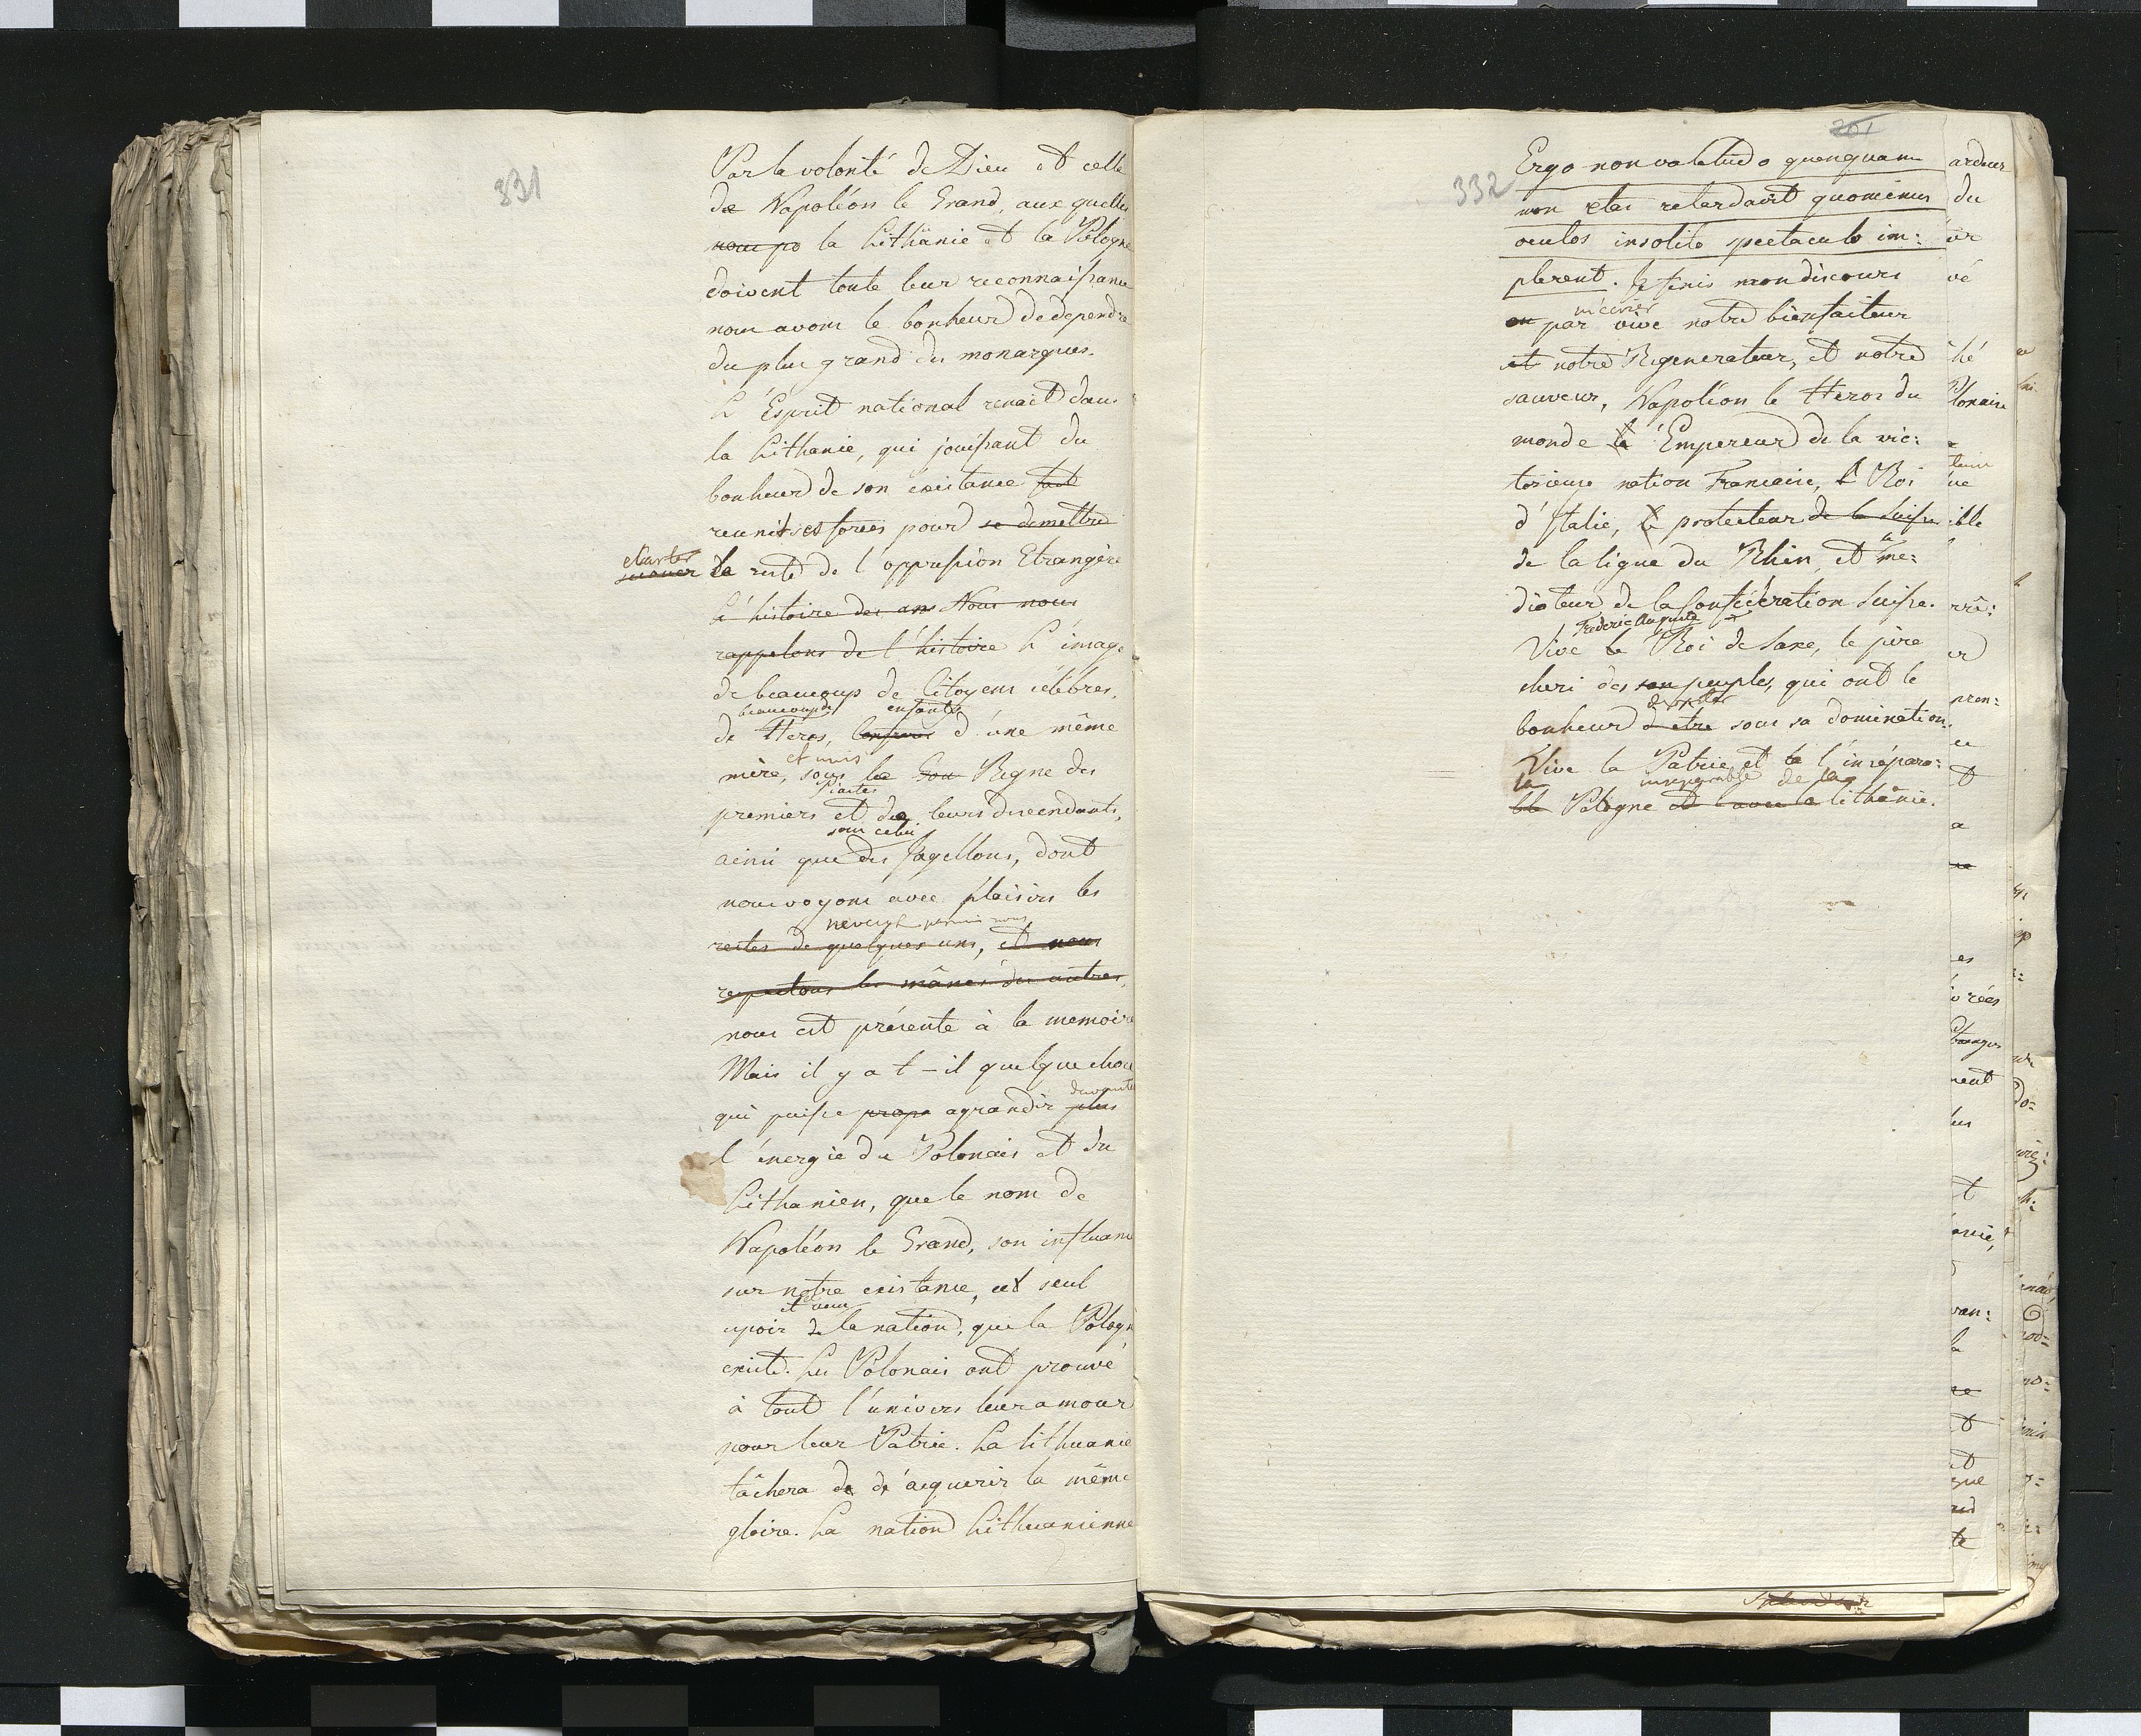 331
Par la volonté de Dieu et celle
de Napoléon le Grand, auxquelles
nous po la Lithuanie et la Pologne
doivent toute leur reconnaissance
nous avons le bonheur de dependre
du plus grand des monarques.
L'Esprit national renait dans
la Lithanie, qui jouissant du
bonheur de son éxistance fait
reunit ses forces pour se demettre
ecarter
le reste de l'oppression Etrangère
L'histoire des ans Nous nous
rappelons de l'histoire L'image
de beaucoup de Citoyens célèbres,
beaucoup de enfants
de Heros, d'une même
et unis
mère, sous le Regne des
Piastes
premiers et de leurs descendants,
sous celui
ainsi que des Jagellons, dont
nous voyons avec plaisir les
neveux parmis nous
restes de quelques uns, et nous
respectons les mânes des autres,
nous est présente à la memoire
Mais il y a t-il quelque chose
davantage
qui puisse propr agrandir plus
l'énergie du Polonais et du
Lithanien, que le nom de
Napoléon le Grand, son influance
sur notre existance, est seul
et vœu
espoir de la nation, que la Pologne
existe. Les Polonais ont prouvé
à tout l'univers leur amour
pour leur Patrie. La Lithuanie
tâchera de d'acquerir la même
gloire. La nation Lithuanienne
201
332
Ergo non valetudo quenquam
non etas retardavit quominus
oculos insolito spectaculo im:
plerent. Je finis mon discours
m'ecrier
en par vive notre bienfaiteur
et notre Regenerateur, et notre
sauveur, Napoléon le Heros du
monde le Empereur de la vic:
torieuse nation Francaise, le Roi
d'Italie, le protecteur de la Suisse
de la ligue du Rhin, et le me:
diateur de la Confédération Suisse.
Frederic Auguste
Vive le Roi de Saxe, le père
cheri des son peuples, qui ont le
d'exister
bonheur d'etre sous sa domination.
Vive la Patrie et le l'inséparа:
la inseparable de la
ble Pologne et avec la Lithanie.